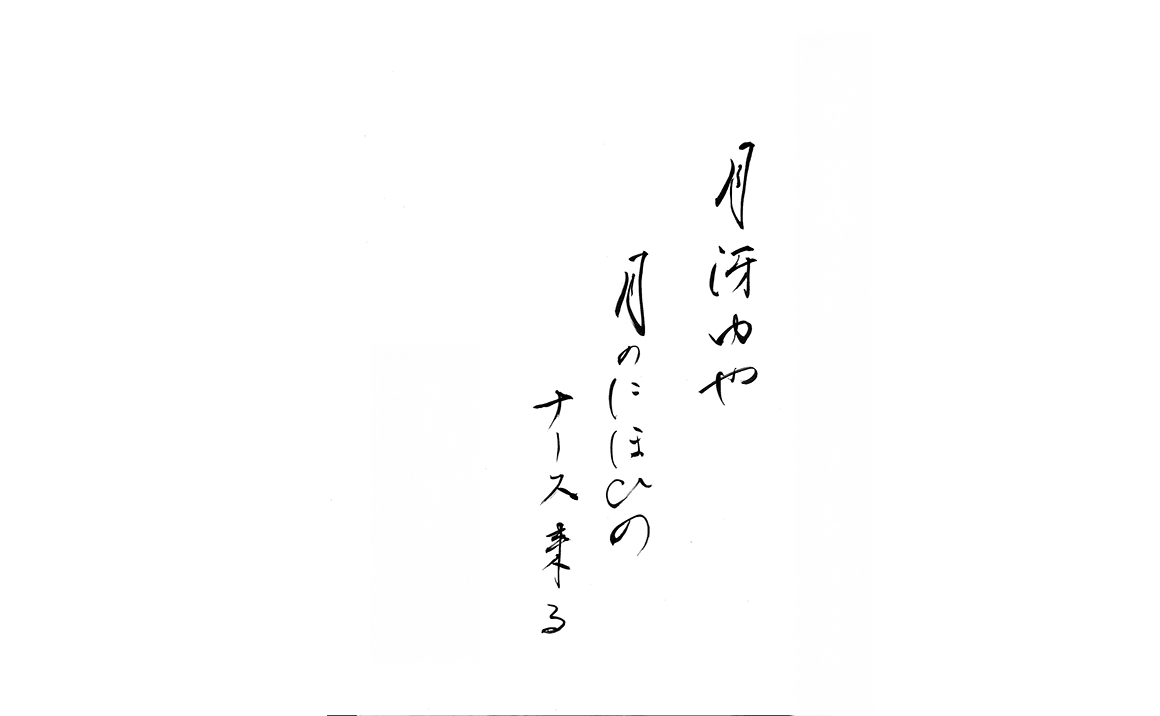 月冴ゆや
月のにほひの
ナース来る